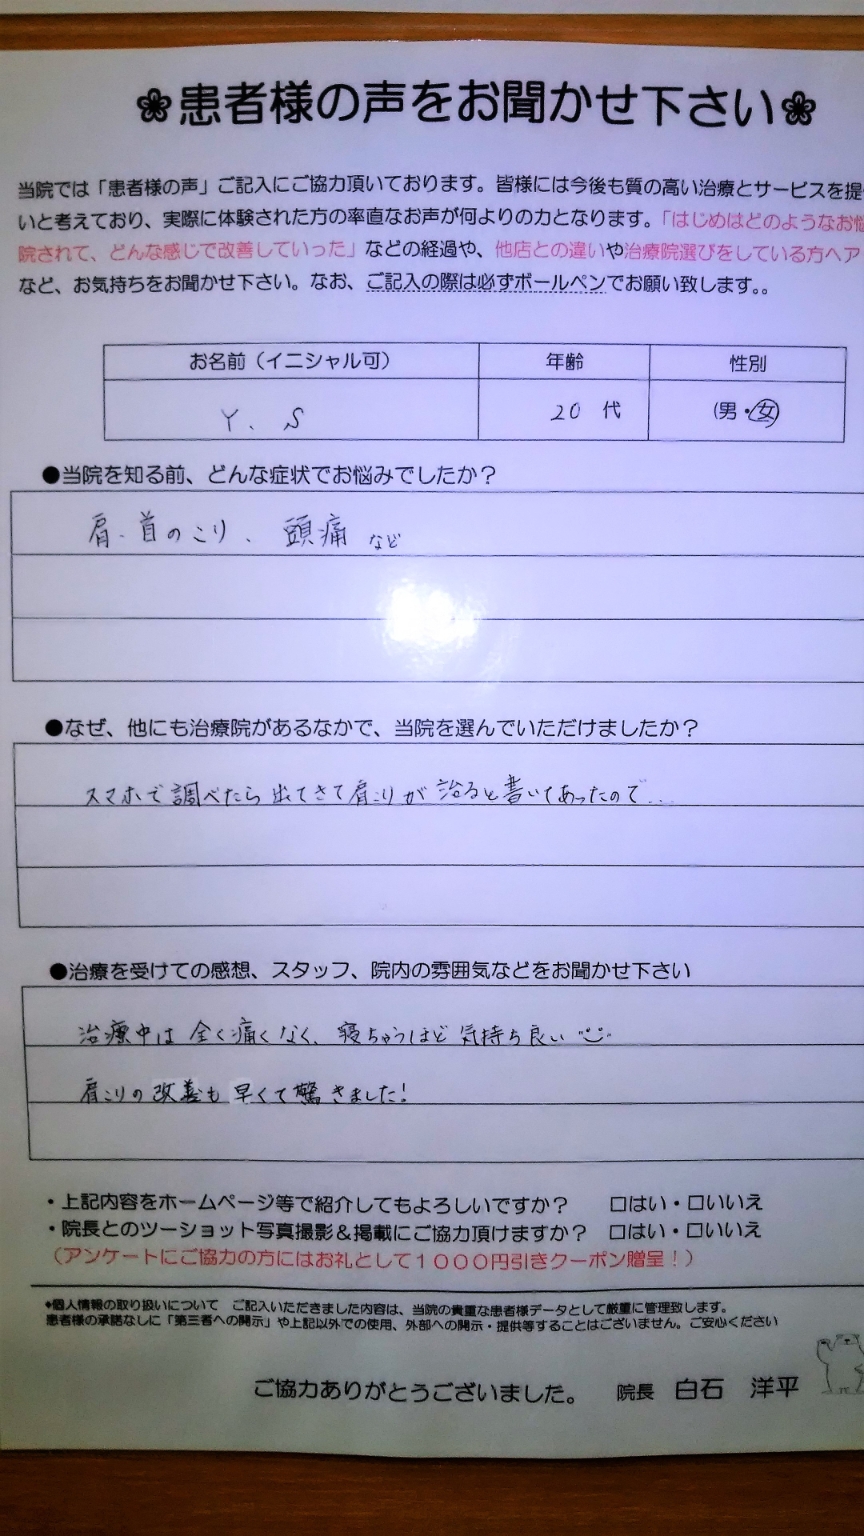 ❀患者様の声をお聞かせ下さい❀
当院では「患者様の声」ご記入にご協力頂いております。皆様には今後も質の高い治療とサービスを提
いと考えており、実際に体験された方の率直なお声が何よりの力となります。「はじめはどのようなお悩
院されて、どんな感じで改善していった」などの経過や、他店との違いや治療院選びをしている方へア
など、お気持ちをお聞かせ下さい。なお、ご記入の際は必ずボールペンでお願い致します。。
お名前（イニシャル可） 年齢 性別
Y、S 20 代 (男・女)
●当院を知る前、どんな症状でお悩みでしたか？
肩、首のこり、頭痛 など
●なぜ、他にも治療院があるなかで、当院を選んでいただけましたか？
スマホで調べたら出てきて肩こりが治ると書いてあったので…
●治療を受けての感想、スタッフ、院内の雰囲気などをお聞かせ下さい
治療中は全く痛くなく、寝ちゃうほど気持ち良い
肩こりの改善も早くて驚きました！
・上記内容をホームページ等で紹介してもよろしいですか？ □はい・□いいえ
・院長とのツーショット写真撮影＆掲載にご協力頂けますか？ □はい・□いいえ
（アンケートにご協力の方にはお礼として１０００円引きクーポン贈呈！）
●個人情報の取り扱いについて ご記入いただきました内容は、当院の貴重な患者様データとして厳重に管理致します。
患者様の承諾なしに「第三者への開示」や上記以外での使用、外部への開示・提供等することはございません。ご安心ください
ご協力ありがとうございました。 院長 白石 洋平